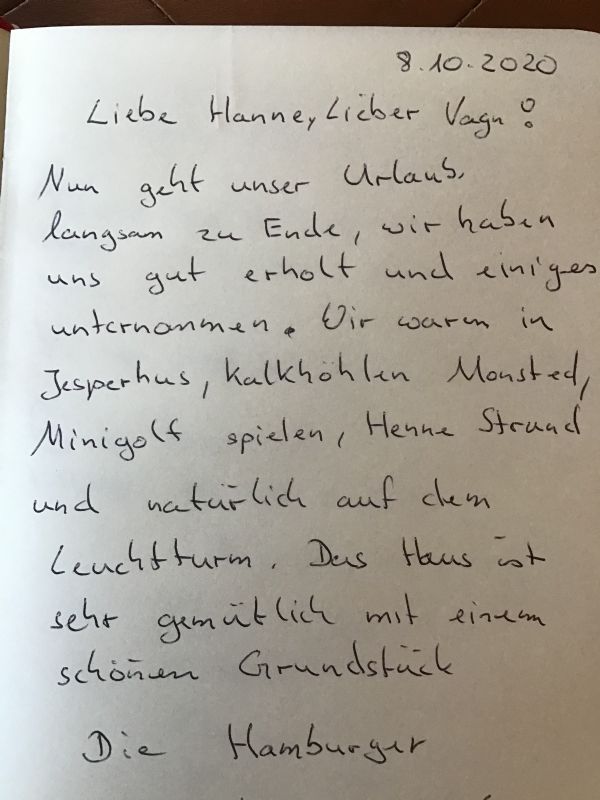 8.10.2020
Liebe Hanne, Lieber Vagn!
Nun geht unser Urlaub
langsam zu Ende, wir haben
uns gut erholt und einiges
unternommen. Wir waren in
Jesperhus, Kalkhöhlen Monsted,
Minigolf spielen, Henne Strand
und natürlich auf dem
Leuchtturm. Das Haus ist
sehr gemütlich mit einem
schönen Grundstück
Die Hamburger